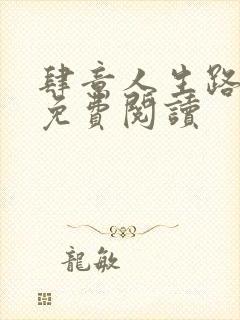 肆意人生路
免費閱讀
龍敏